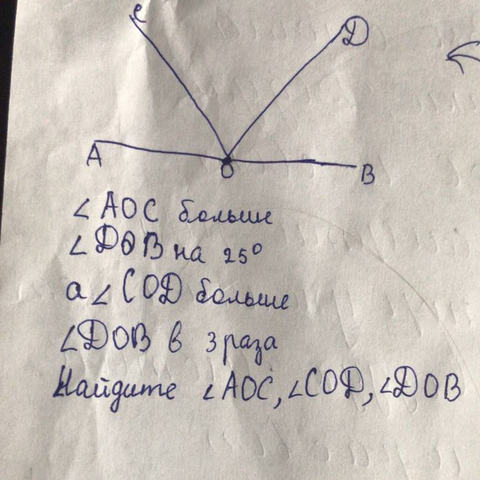 C
Д
A
O
B
∠AOC больше
∠DOB на 25°
а ∠COD больше
∠DOB в 3 раза
Найдите ∠AOC, ∠COD, ∠DOB